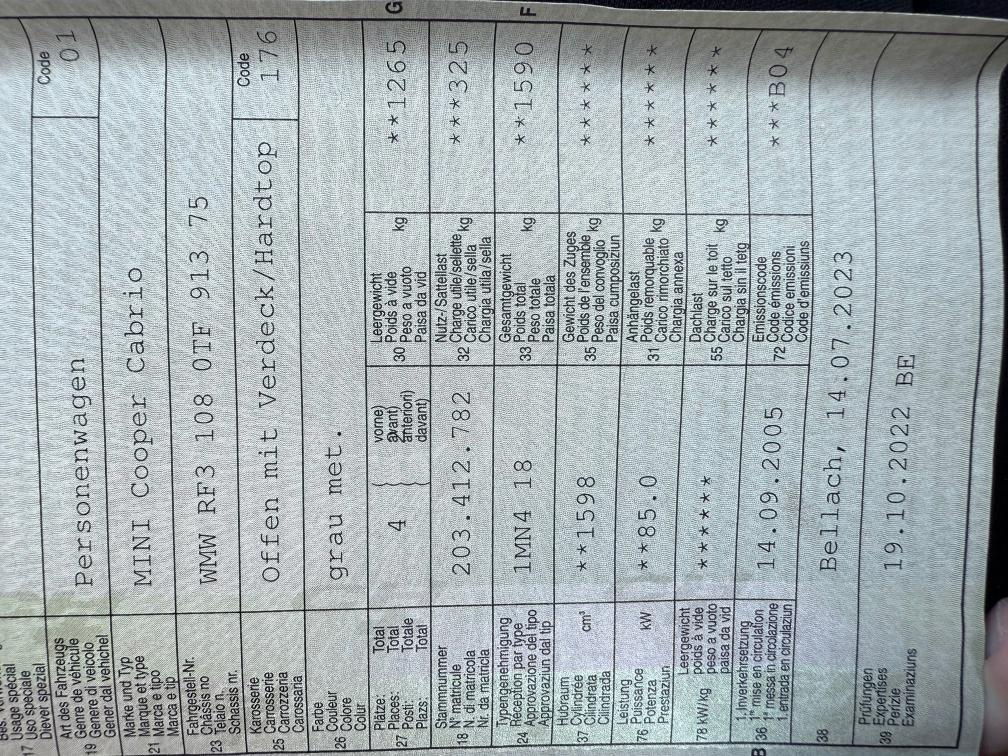 17 Usage spécial
Uso speciale
Diever spezial
Art des Fahrzeugs
Genre de véhicule
19 Genere di veicolo
Gener dal vehichel
Personenwagen
Code
01
Marke und Typ
Marque et type
21 Marca e tipo
Marca e tip
MINI Cooper Cabrio
Fahrgestell-Nr.
Châssis no
23 Telaio n.
Schassis nr.
WMW RF3 108 0TF 913 75
Karosserie
Carrosserie
25 Carozzeria
Carossaria
Offen mit Verdeck/Hardtop
Code
176
Farbe
Couleur
26 Colore
Colur
grau met.
Plätze: Total
Places: Total
27 Posti: Totale
Plazs: Total
4
vorne)
avant)
anteriori)
davant)
Leergewicht
Poids à vide
30 Peso a vuoto kg
Paisa da vid
**1265
G
Stammnummer
N° matricule
18 N. di matricola
Nr. da matricla
203.412.782
Nutz-/Sattellast
Charge utile/sellette
32 Carico utile/sella kg
Chargia utila/sella
***325
Typengenehmigung
Réception par type
24 Approvazione del tipo
Approvaziun dal tip
1MN4 18
Gesamtgewicht
Poids total
33 Peso totale kg
Paisa totala
**1590
F
Hubraum
Cylindrée
37 Cilindrata cm³
Cilindrada
**1598
Gewicht des Zuges
Poids de l'ensemble
35 Peso del convoglio kg
Paisa cumposiziun
******
Leistung
Puissance
76 Potenza kW
Prestaziun
**85.0
Anhängelast
Poids remorquable
31 Carico rimorchiato kg
Chargia annexa
******
Leergewicht
poids à vide
78 kW/kg peso a vuoto
paisa da vid
******
Dachlast
Charge sur le toit
55 Carico sul tetto kg
Chargia sin il tetg
******
B
1. Inverkehrsetzung
1re mise en circulation
36 1a messa in circolazione
1. entrada en circulaziun
14.09.2005
Emissionscode
Code émissions
72 Codice emissioni
Code d'emissiuns
***B04
38
Bellach, 14.07.2023
Prüfungen
Expertises
39 Perizie
Examinaziuns
19.10.2022 BE